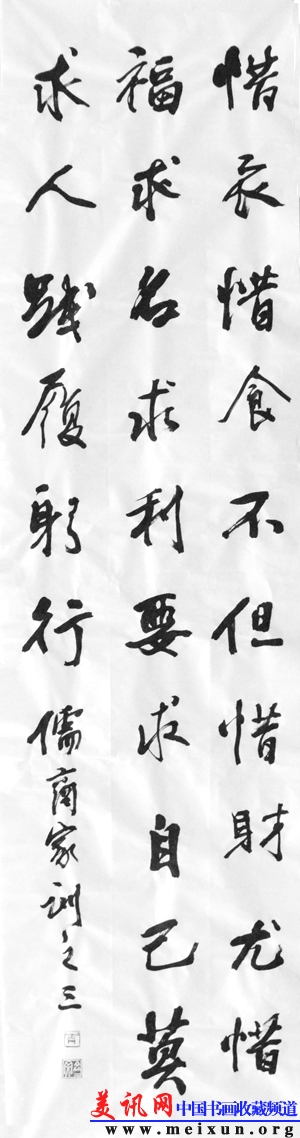 惜衣惜食不但惜财尤惜
福求名求利要求自己莫
求人践履躬行
儒商家训之三
美讯网中国书画收藏频道
www.meixun.org